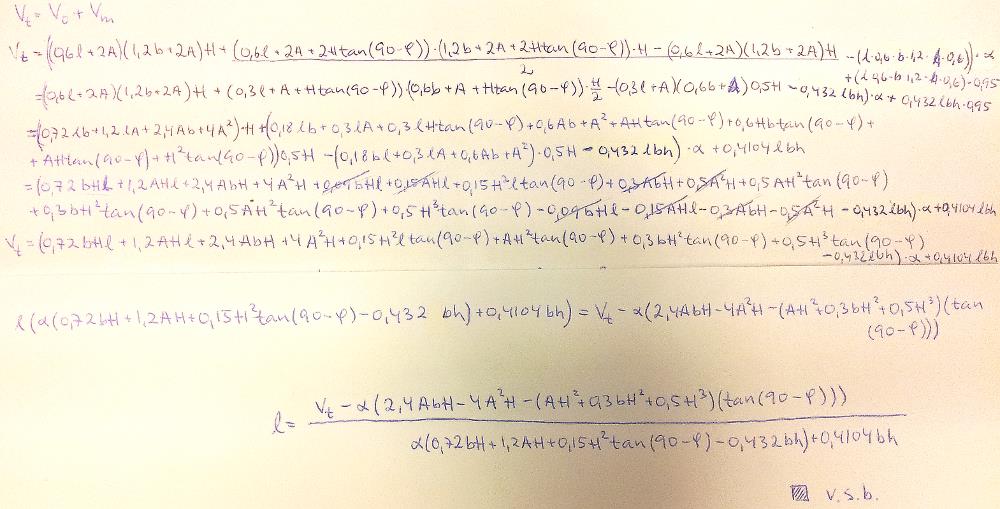 V_t = V_o + V_m
V_t = ((0,6l+2A)(1,2b+2A)H + ((0,6l+2A+2Htan(90-φ))·(1,2b+2A+2Htan(90-φ))·H - (0,6l+2A)(1,2b+2A)H)/2 - (l·0,6·b·1,2·h·0,6))·α
+ (l·0,6·b·1,2·h·0,6)·0,95
= (0,6l+2A)(1,2b+2A)H + (0,3l+A+Htan(90-φ))(0,6b+A+Htan(90-φ))·H/2 - (0,3l+A)(0,6b+A)0,5H - 0,432lbh)·α + 0,432lbh·0,95
= (0,72lb+1,2lA+2,4Ab+4A²)·H + (0,18lb+0,3lA+0,3lHtan(90-φ)+0,6Ab+A²+AHtan(90-φ)+0,6Hbtan(90-φ)+
+AHtan(90-φ)+H²tan(90-φ))0,5H - (0,18bl+0,3lA+0,6Ab+A²)·0,5H - 0,432lbh)·α + 0,4104lbh
= (0,72bHl+1,2AHl+2,4AbH+4A²H+0,09bHl+0,15AHl+0,15H²ltan(90-φ)+0,3AbH+0,5A²H+0,5AH²tan(90-φ)
+0,3bH²tan(90-φ)+0,5AH²tan(90-φ)+0,5H³tan(90-φ)-0,09bHl-0,15AHl-0,3AbH-0,5A²H-0,432lbh)·α+0,4104lbh
V_t = (0,72bHl+1,2AHl+2,4AbH+4A²H+0,15H²ltan(90-φ)+AH²tan(90-φ)+0,3bH²tan(90-φ)+0,5H³tan(90-φ)
-0,432lbh)·α+0,4104lbh
l(α(0,72bH+1,2AH+0,15H²tan(90-φ)-0,432 bh)+0,4104bh) = V_t - α(2,4AbH-4A²H-(AH²+0,3bH²+0,5H³)(tan
(90-φ)))
l = (V_t - α(2,4AbH-4A²H-(AH²+0,3bH²+0,5H³)(tan(90-φ))))
/ (α(0,72bH+1,2AH+0,15H²tan(90-φ)-0,432bh)+0,4104bh)
v.s.b.